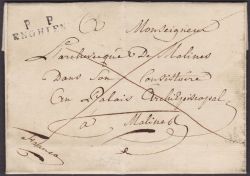 P P
ENGHIEN
Monseigneur
L'archevecque De Malines
Dans Son Consistoire
En Palais Archiépiscopal
a Malines